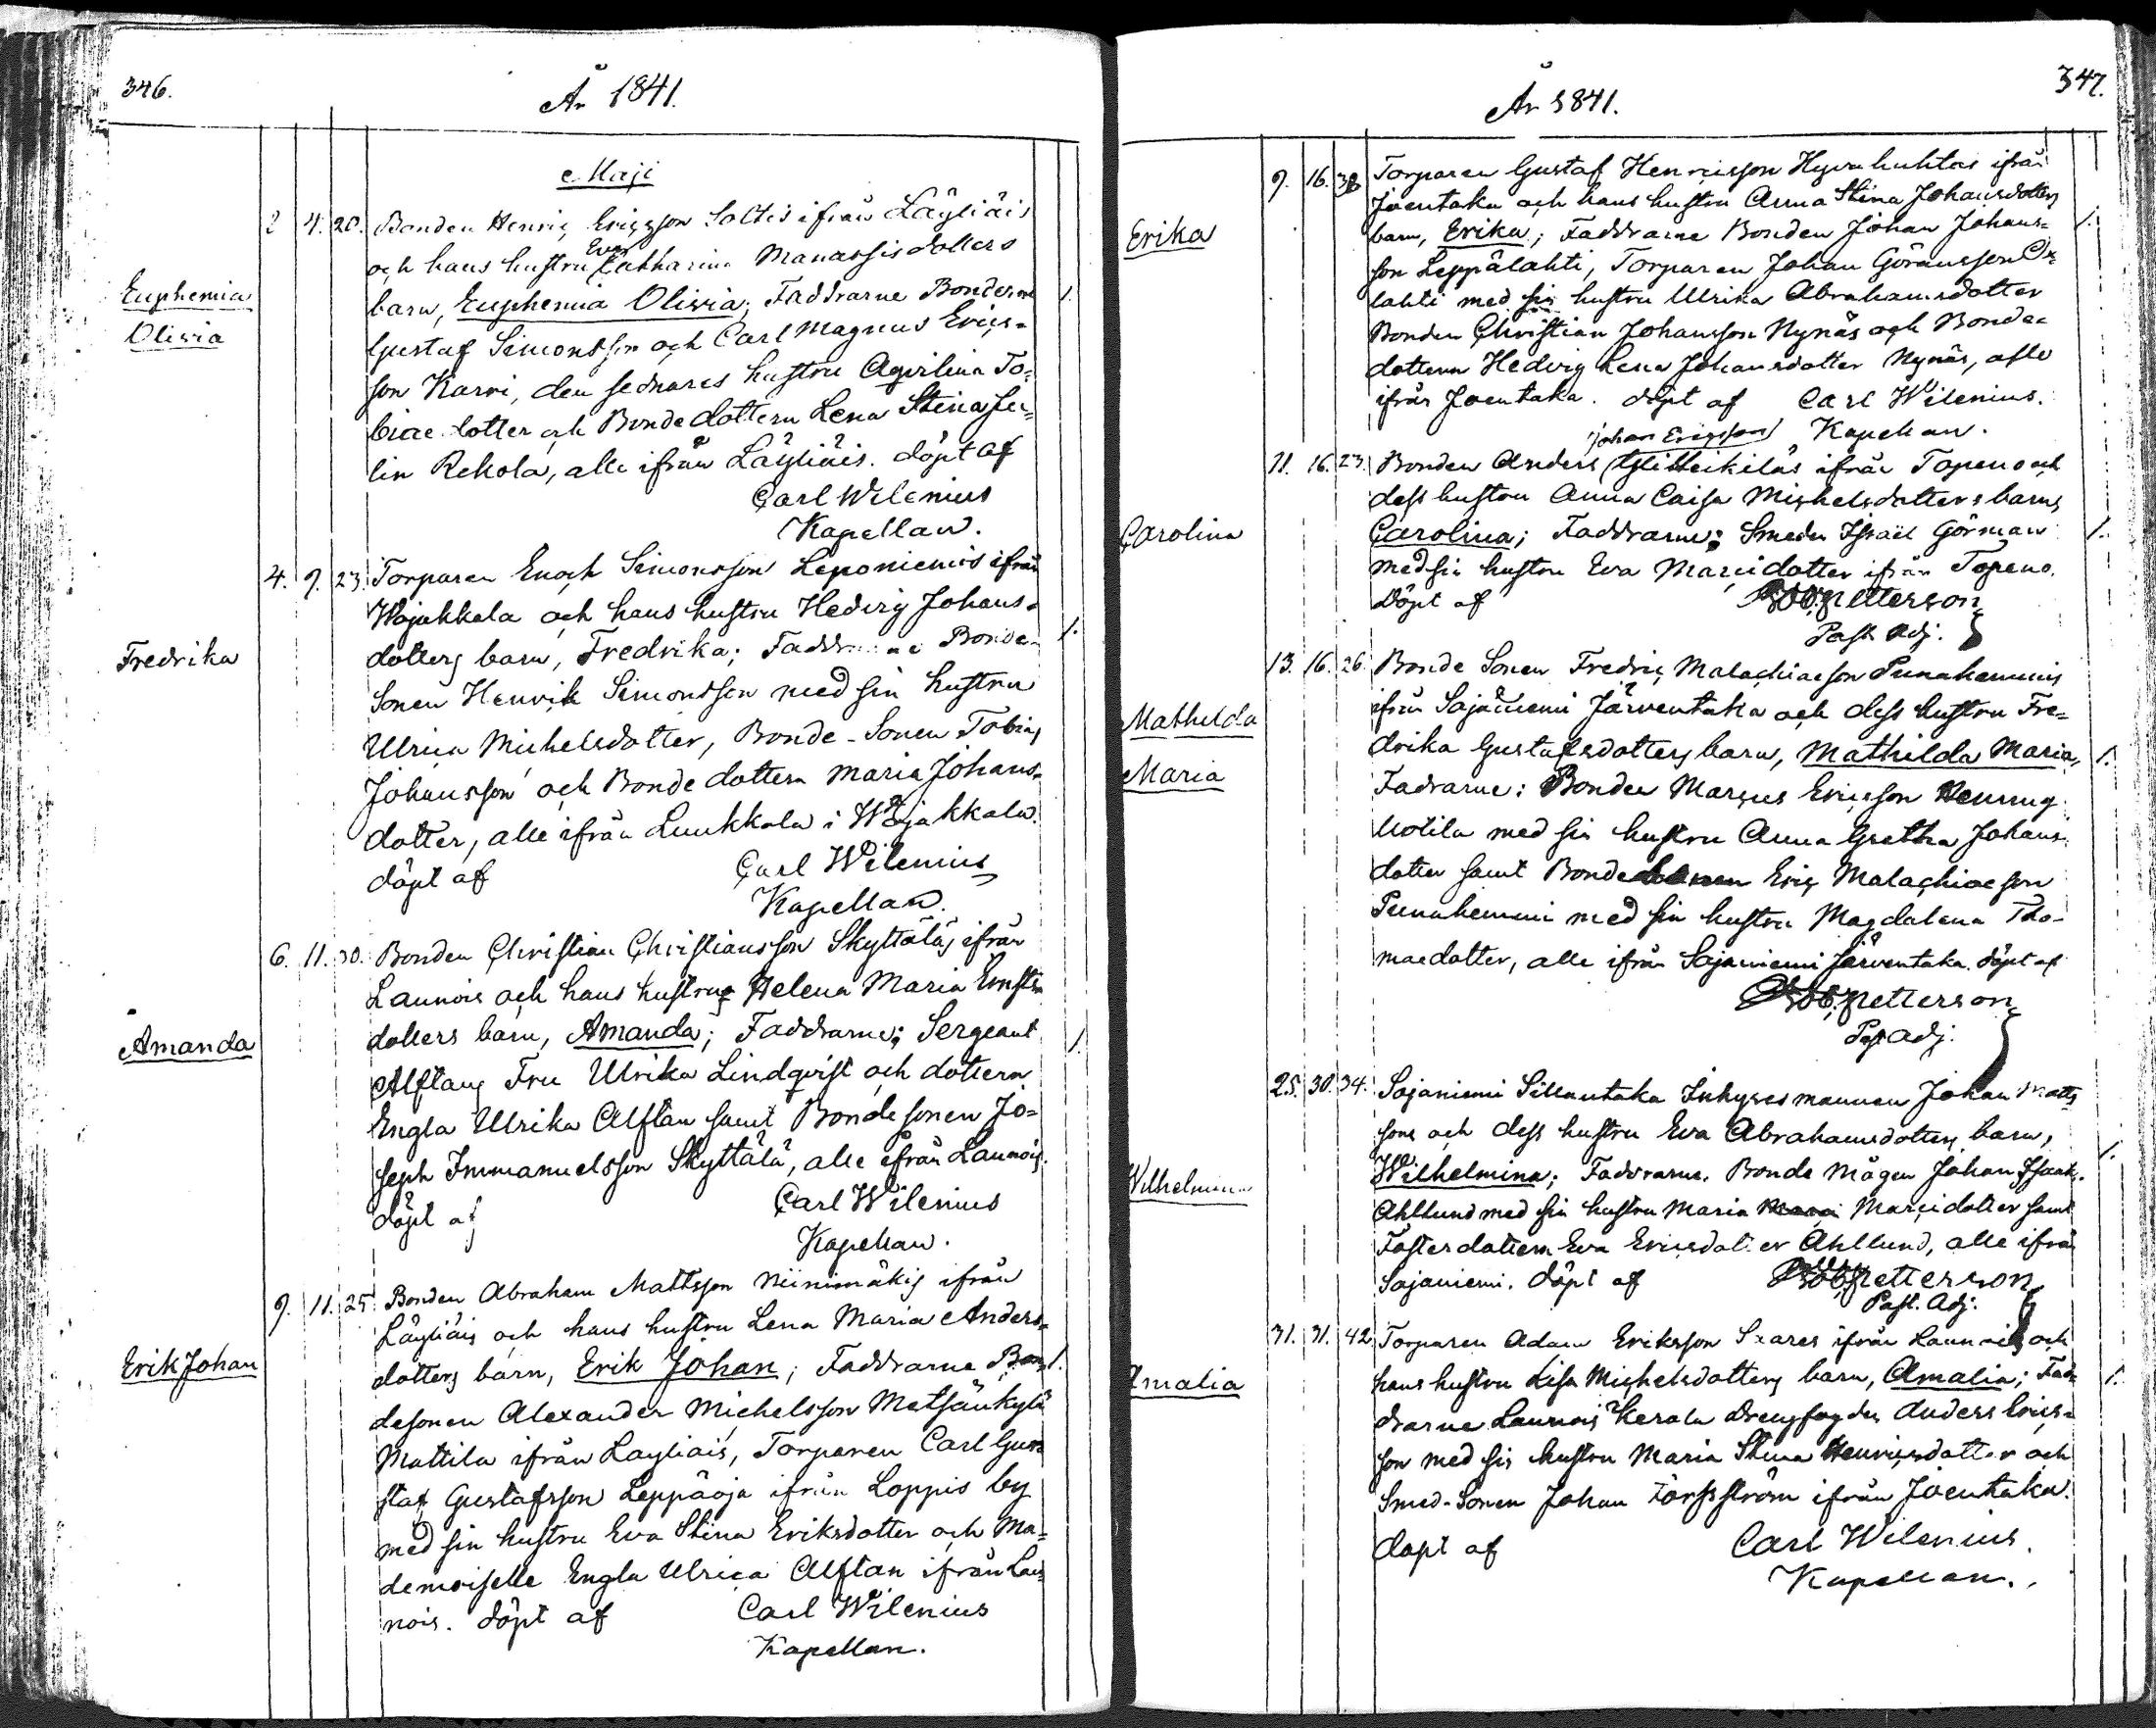 346.
År 1841.
Maji
Euphemia
Olivia
2 4. 20. Bonden Henric Ericsson Soltis ifrån Läyliäis
och hans hustru Eva Catharina Manassisdotters
barn, Euphemia Olivia; Faddrarne Bönderne 1.
Gustaf Simonsson och Carl Magnus Erics-
son Karvi, den sednares hustru Agvilina To-
biaedotter och Bonde dottern Lena Stina Ju-
lin Rekola, alle ifrån Läyliäis. döpt af
Carl Wilenius
Kapellan.
Fredrika
4. 9. 23. Torparen Enoch Simonsson Leponiemis ifrån
Wojakkala och hans hustru Hedvig Johans-
dotters barn, Fredrika; Faddrarne Bonde- 1.
Sonen Henrik Simonsson med sin hustru
Ulrica Michelsdotter, Bonde-Sonen Tobias
Johansson och Bonde dottern Maria Johans-
dotter, alle ifrån Luukkala i Wojakkala.
döpt af Carl Wilenius
Kapellan.
Amanda
6. 11. 30. Bonden Christian Christiansson Skyttäläs ifrån
Launois och hans hustrus Helena Maria Ernsts-
dotters barn, Amanda; Faddrarne; Sergeant 1.
Alftans Fru Ulrika Lindqvist och dottern
Engla Ulrika Alftan samt Bondesonen Jo-
seph Immanuelsson Skyttälä, alle ifrån Launois.
döpt af Carl Wilenius
Kapellan.
Erik Johan
9. 11. 25. Bonden Abraham Mattsson Niinimäkis ifrån
Läyliäis och hans hustru Lena Maria Anders-
dotters barn, Erik Johan; Faddrarne Bon- 1.
desonen Alexander Michelsson Metsänkylä
Mattila ifrån Layliäis, Torparen Carl Gus-
taf Gustafsson Leppäoja ifrån Loppis by
med sin hustru Eva Stina Eriksdotter och Ma-
demoiselle Engla Ulrica Alftan ifrån Lau-
nois. döpt af Carl Wilenius
Kapellan.
347.
År 1841.
Erika
9. 16. 38 Torparen Gustaf Henricsson Hyvnhuhtas ifrån
Joentaka och hans hustru Anna Stina Johansdotters
barn, Erika; Faddrarne Bonden Johan Johans- 1.
son Leppälahti, Torparen Johan Göransson
lahti med sin hustru Ulrika Abrahamsdotter
Bonden Christian Johansson Nynäs och Bonde-
dottern Hedvig Lena Johansdotter Nynäs, alle
ifrån Joentaka. döpt af Carl Wilenius.
Kapellan.
Carolina
Johan Ericsson
11. 16. 23. Bonden Anders Ylitteikiläs ifrån Topeno och
dess hustru Anna Caisa Michelsdotters barn,
Carolina; Faddrarne; Smeden Israël Görman 1.
med sin hustru Eva Marcidotter ifrån Topeno.
Döpt af Petterson
Past. Adj.
Mathilda
Maria
13. 16. 26. Bonde Sonen Fredric Malachiaeson Punahemmis
ifrån Sajäniemi Järventaka och dess hustru Fre-
drika Gustafsdotters barn, Mathilda Maria, 1.
Fadrarne: Bonden Marcus Ericsson
Uotila med sin hustru Anna Gretha Johans-
dotter samt Bonde Eric Malachiaeson
Punahemmi med sin hustru Magdalena Tho-
maedotter, alle ifrån Sajaniemi Järventaka. döpt af
Petterson
Past. Adj.
Wilhelmina
25. 30. 34. Sajaniemi Sillantaka Inhysesmannen Johan Matts
sons och dess hustru Eva Abrahamsdotters barn, 1.
Wilhelmina; Faddrarne. Bonde Mågen Johan Isaaks.
Ahllund med sin hustru Maria Marcidotter samt
Fosterdottern Eva Ericsdotter Ahllund, alle ifrån
Sajaniemi. döpt af Petterson
Past. Adj.
Amalia
31. 31. 42. Torparen Adam Eriksson Skares ifrån Launois och
hans hustru Lisa Michelsdotters barn, Amalia; Fad- 1.
drarne Launois Kerola Drengfogden Anders Erics-
son med sin hustru Maria Stina Henricsdotter och
Smed-Sonen Johan Forsström ifrån Joentaka.
döpt af Carl Wilenius.
Kapellan.